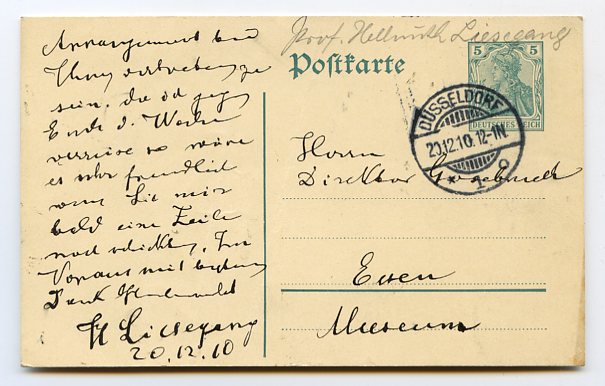 Arrangement bei
Ihnen vertreten zu
sein, da ich gegen
Ende d. Woche
verreise so wäre
es sehr freundlich
wenn Sie mir
bald eine Zeile
noch schickten. Im
Voraus mit bestem
Dank
H Liesegang
20.12.10
Prof. Hellmuth Liesegang
Postkarte
5 5
DEUTSCHES REICH
DÜSSELDORF
20.12.10. 12-1N.
* 1
Herrn
Direktor
Essen
Museum